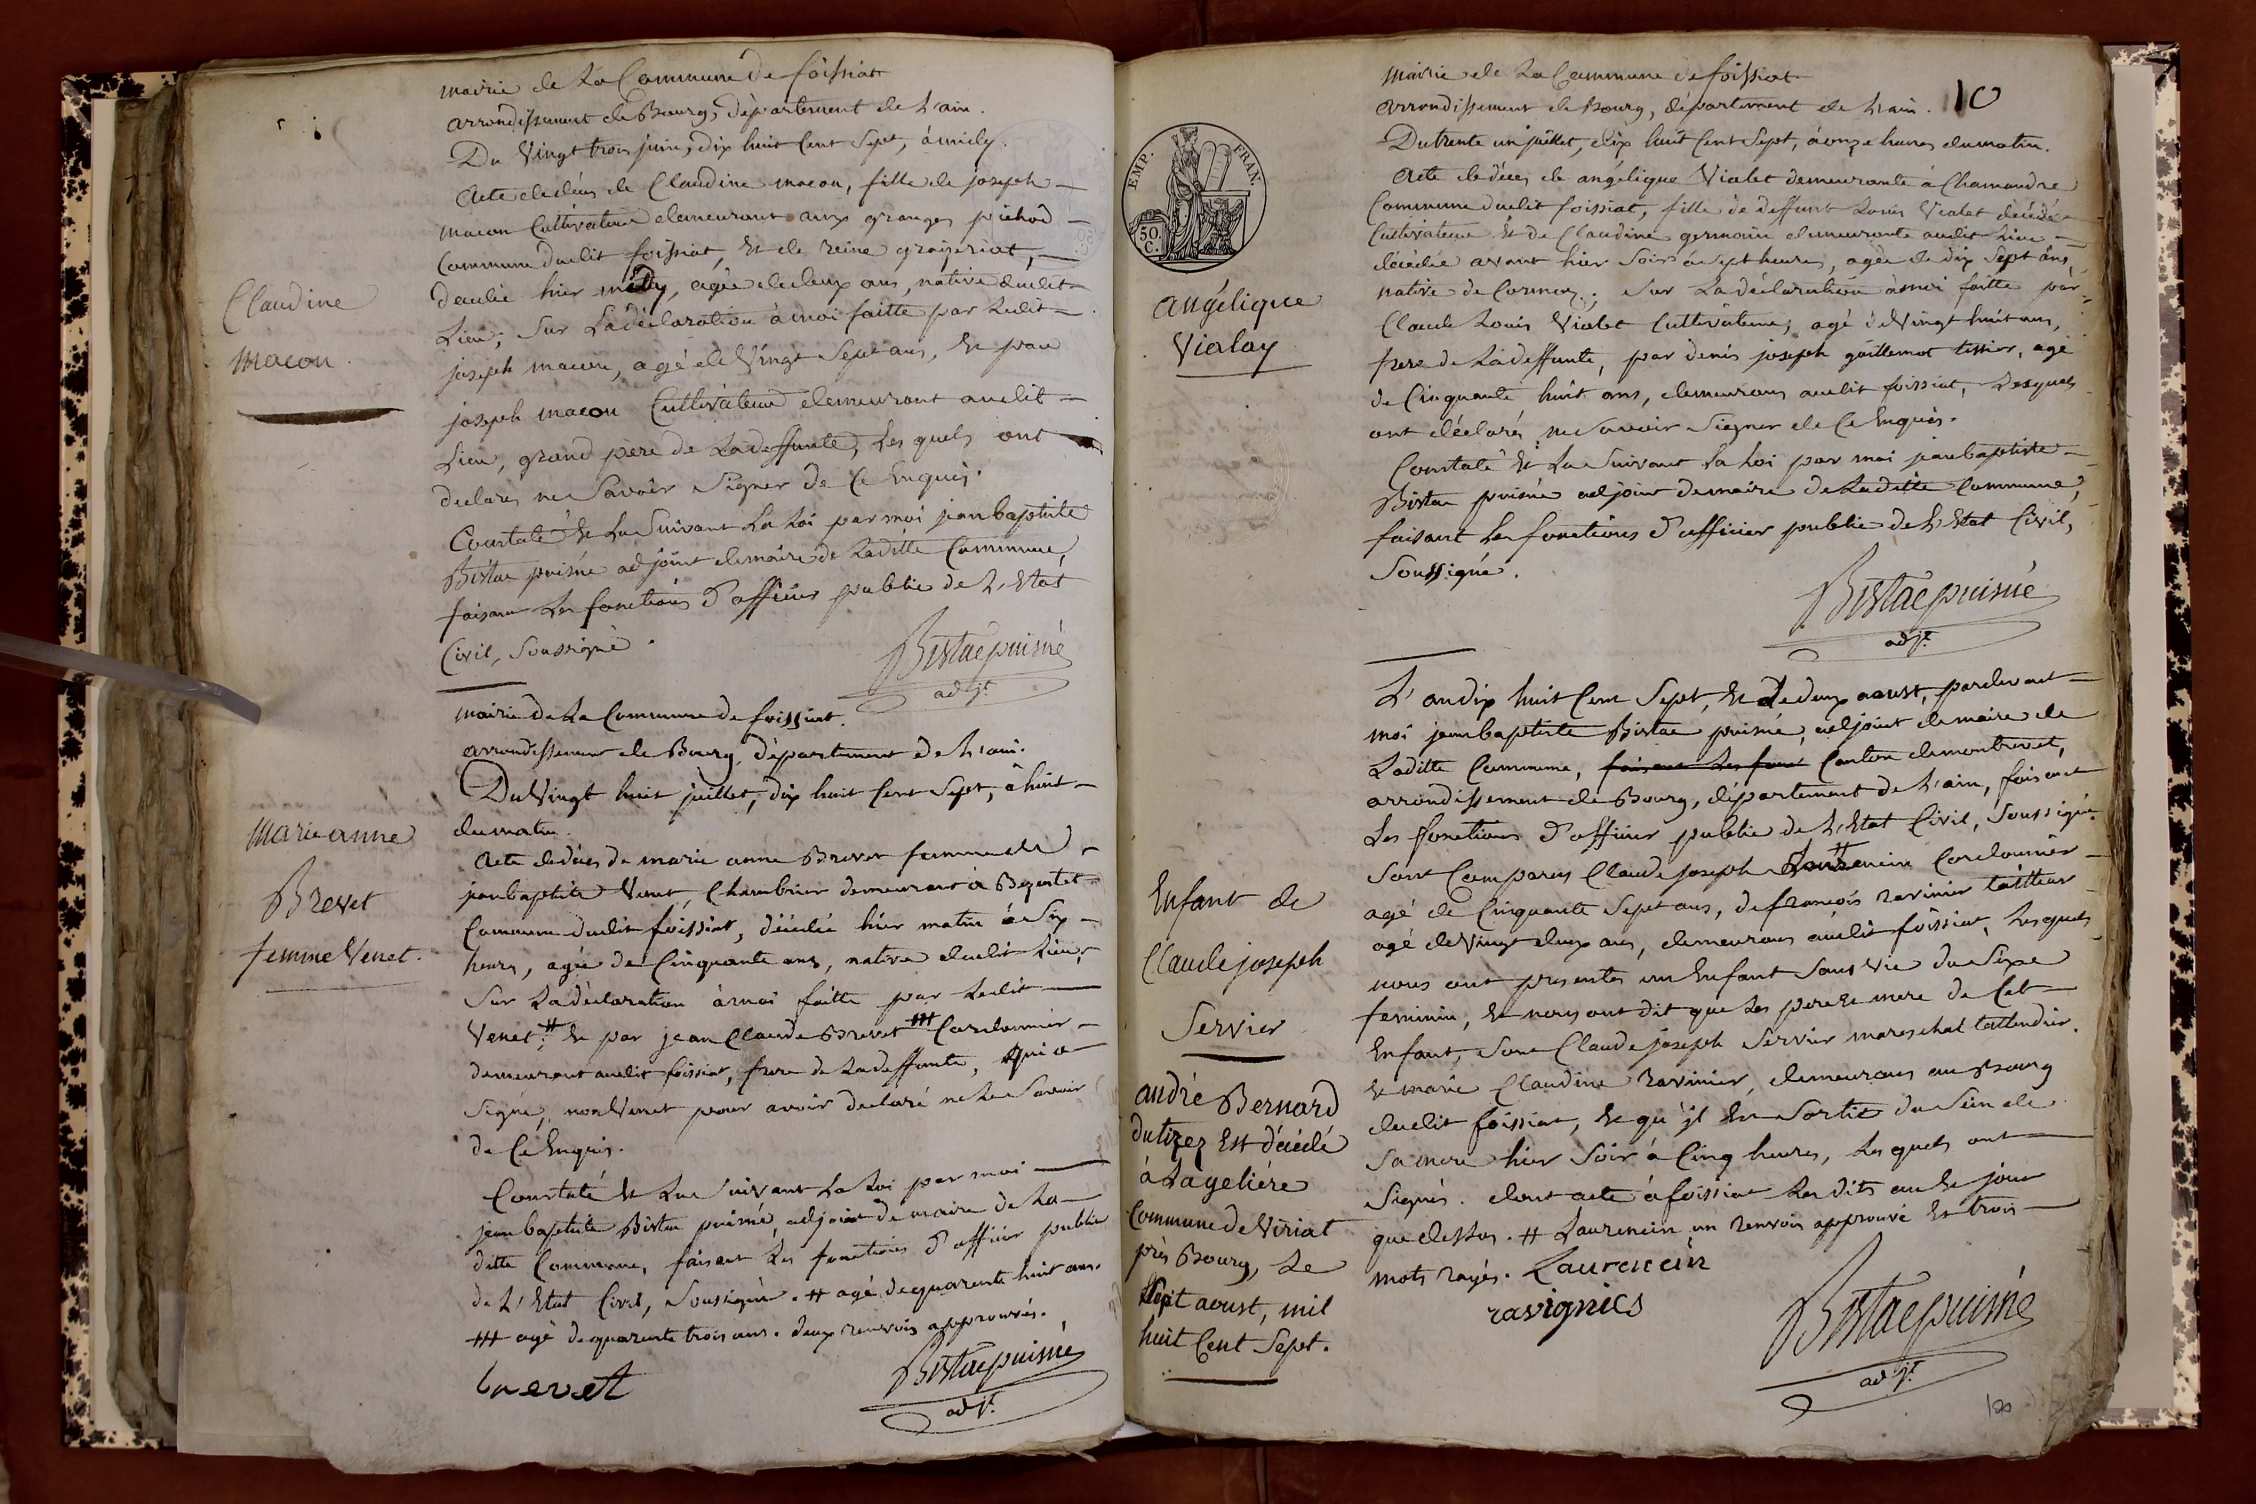 mairie de La Commune de foissiat
arrondissement de Bourg, département de L'ain.
Du Vingt trois juin, dix huit Cent Sept, à midy.
Acte de décès de Claudine macon, fille de joseph
macon Cultivateur demeurant aux granges pichod
Commune dudit foissiat, et de reine
décédée hier midy, agée de deux ans, native dudit
Lieu; Sur La déclaration à moi faitte par Ledit
joseph macon, agé de Vingt Sept ans, et par
joseph macon Cultivateur demeurant audit
Lieu, grand pere de La deffunte, Les quels ont
declarés ne Savoir Signer de Ce Enquis.
Constaté et Lu Suivant La Loi par moi jean baptiste
Bistac puisné adjoint de maire de Laditte Commune,
faisant Les fonctions d'officier public de L'Etat
Civil, Soussigné.
Bistac puisné
adjt.
Claudine
macon.
mairie de La Commune de foissiat.
arrondissement de Bourg, département de L'ain.
Du Vingt huit juillet, dix huit Cent Sept, à huit
du matin.
Acte de décès de marie anne Brevet femme de
jean baptiste Venet, Chambrier demeurant à
Commune dudit foissiat, décédée hier matin à Six
heures, agée de Cinquante ans, native dudit Lieu,
Sur La déclaration à moi faitte par Ledit
Venet # et par jean Claude Brevet ## Cordonnier
demeurant audit foissiat, frere de La deffunte, qui a
Signé, non Venet pour avoir declaré ne Le Savoir
de Ce Enquis.
Constaté et Lu Suivant La Loi par moi
jean baptiste Bistac puisné, adjoint de maire de La
ditte Commune, faisant Les fonctions d'officier public
de L'Etat Civil, Soussigné. # agé de quarante huit ans.
## agé de quarante trois ans. deux renvois approuvés.
brevet
Bistac puisné
adjt.
Marie anne
Brevet
femme Venet.
10
mairie de La Commune de foissiat
arrondissement de Bourg, département de L'ain.
Du trente un juillet, dix huit Cent Sept, à onze heures du matin.
Acte de décès de angélique Vialet demeurante à Chamandre
Commune dudit foissiat, fille de deffunt Louis Vialet décédé
Cultivateur et de Claudine germain demeurante audit Lieu
décédée avant hier Soir à Sept heures, agée de dix Sept ans,
native de Cormoz; Sur La déclaration à moi faitte par
Claude Louis Vialet Cultivateur, agé de Vingt huit ans,
frere de La deffunte, par denis joseph guillemot tissier, agé
de Cinquante huit ans, demeurans audit foissiat, Lesquels
ont déclarés ne Savoir Signer de Ce Enquis.
Constaté et Lu Suivant La Loi par moi jean baptiste
Bistac puisné adjoint de maire de Laditte Commune,
faisant Les fonctions d'officier public de L'Etat Civil,
Soussigné.
Bistac puisné
adjt.
EMP. FRAN.
50. C.
angélique
Vialay
L'an dix huit Cent Sept, et Le deux aoust, pardevant
moi jean baptiste Bistac puisné, adjoint de maire de
Laditte Commune, faisant Les fonct Canton de montrevel,
arrondissement de Bourg, département de L'ain, faisant
Les fonctions d'officier public de L'Etat Civil, Soussigné.
Sont Comparus Claude joseph # Cordonnier
agé de Cinquante Sept ans, de francois ravinier tailleur
agé de Vingt deux ans, demeurans audit foissiat, Lesquels
nous ont presentés un Enfant Sans Vie du Sexe
feminin, et nous ont dit que Les pere et mere de Cet
Enfant, Sont Claude joseph Servier mareschal tallendier.
et marie Claudine ravinier, demeurans au Bourg
dudit foissiat, et qu'il Est Sortit du Sein de
Sa mere hier Soir à Cinq heures, Les quels ont
Signés. dont acte à foissiat Les dits an et jour
que dessus. # Laurencin un renvoi approuvé Et trois
mots rayés. Laurencin
ravignies
Bistac puisné
adjt.
Enfant de
Claude joseph
Servier
andré Bernard
dutirez Est décédé
à La geliére
Commune de Viriat
près Bourg, Le
Sept aoust, mil
huit Cent Sept.